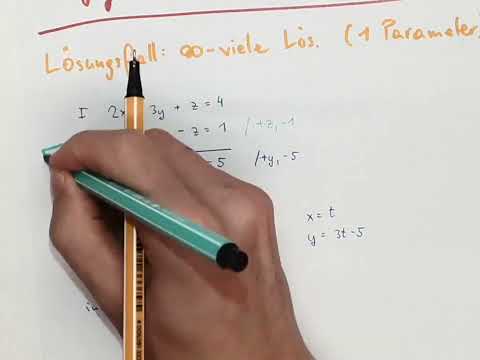 Lösungsfall: ∞-viele Lös. (1 Parameter)
I 2x 3y + z = 4
- z = 1 /+z,-1
-5 /+y,-5
x = t
y = 3t-5